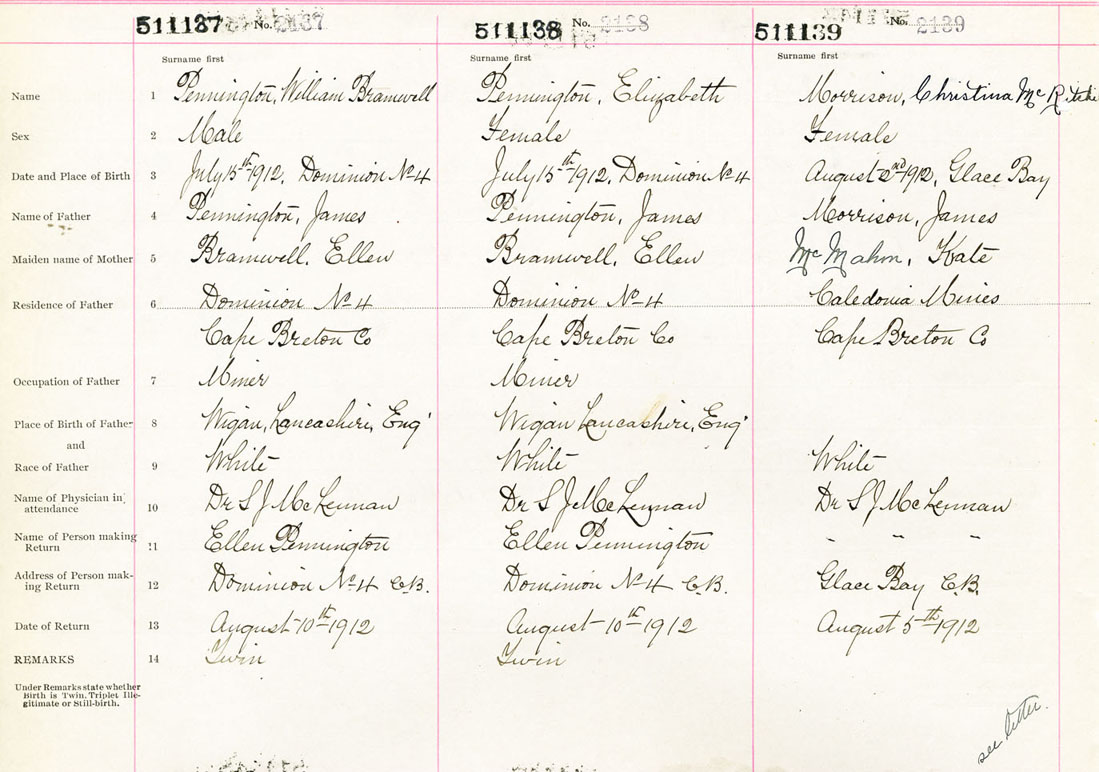 511137 No. 2137 511138 No. 2138 511139 No. 2139
Surname first Surname first Surname first
Name 1 Pennington, William Bramwell Pennington, Elizabeth Morrison, Christina Mc Ritchie
Sex 2 Male Female Female
Date and Place of Birth 3 July 15th 1912, Dominion No 4 July 15th 1912, Dominion No 4 August 2nd 1912, Glace Bay
Name of Father 4 Pennington, James Pennington, James Morrison, James
Maiden name of Mother 5 Bramwell, Ellen Bramwell, Ellen Mc Mahon, Kate
Residence of Father 6 Dominion No 4 Dominion No 4 Caledonia Mines
Cape Breton Co Cape Breton Co Cape Breton Co
Occupation of Father 7 Miner Miner
Place of Birth of Father 8 Wigan, Lancashire, Eng' Wigan Lancashire, Eng'
and
Race of Father 9 White White White
Name of Physician in attendance 10 Dr S J Mc Lennan Dr S J Mc Lennan Dr S J Mc Lennan
Name of Person making Return 11 Ellen Pennington Ellen Pennington - - -
Address of Person mak-
ing Return 12 Dominion No 4 C.B. Dominion No 4 C.B. Glace Bay C.B.
Date of Return 13 August 10th 1912 August 10th 1912 August 5th 1912
REMARKS 14 Twin Twin
Under Remarks state whether
Birth is Twin, Triplet Ille-
gitimate or Still-birth.
see letter.